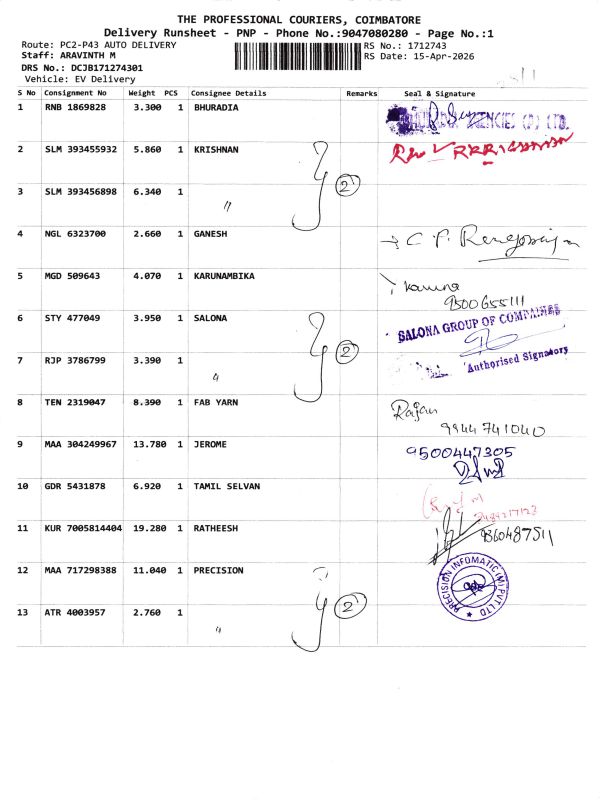 THE PROFESSIONAL COURIERS, COIMBATORE
Delivery Runsheet - PNP - Phone No.:9047080280 - Page No.:1
Route: PC2-P43 AUTO DELIVERY
RS No.: 1712743
Staff: ARAVINTH M
RS Date: 15-Apr-2026
DRS No.: DCJB171274301
Vehicle: EV Delivery
S No Consignment No Weight PCS Consignee Details Remarks Seal & Signature
1 RNB 1869828 3.300 1 BHURADIA
2 SLM 393455932 5.860 1 KRISHNAN
3 SLM 393456898 6.340 1 " 2
4 NGL 6323700 2.660 1 GANESH
5 MGD 509643 4.070 1 KARUNAMBIKA Karuna
9500655111
6 STY 477049 3.950 1 SALONA SALONA GROUP OF COMPAINES
7 RJP 3786799 3.390 1 " 2 Authorised Signatory
8 TEN 2319047 8.390 1 FAB YARN Rajan
9944741040
9 MAA 304249967 13.780 1 JEROME 9500447305
10 GDR 5431878 6.920 1 TAMIL SELVAN
11 KUR 7005814404 19.280 1 RATHEESH 9360487511
12 MAA 717298388 11.040 1 PRECISION PRECISION INFOMATIC (M) PVT LTD
13 ATR 4003957 2.760 1 " 2